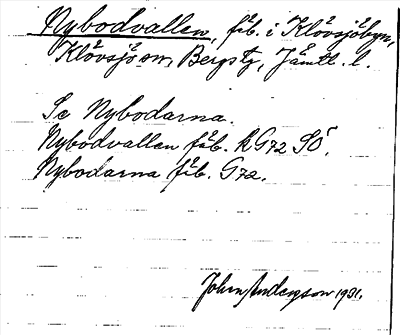 Nybodvallen, fäb. i Klövsjöbyn,
Klövsjö sn, Bergs tg, Jämtl. l.
Se Nybodarna.
Nybodvallen fäb. kG72 SÖ.
Nybodarna fäb. G72.
John Anderson 1931.